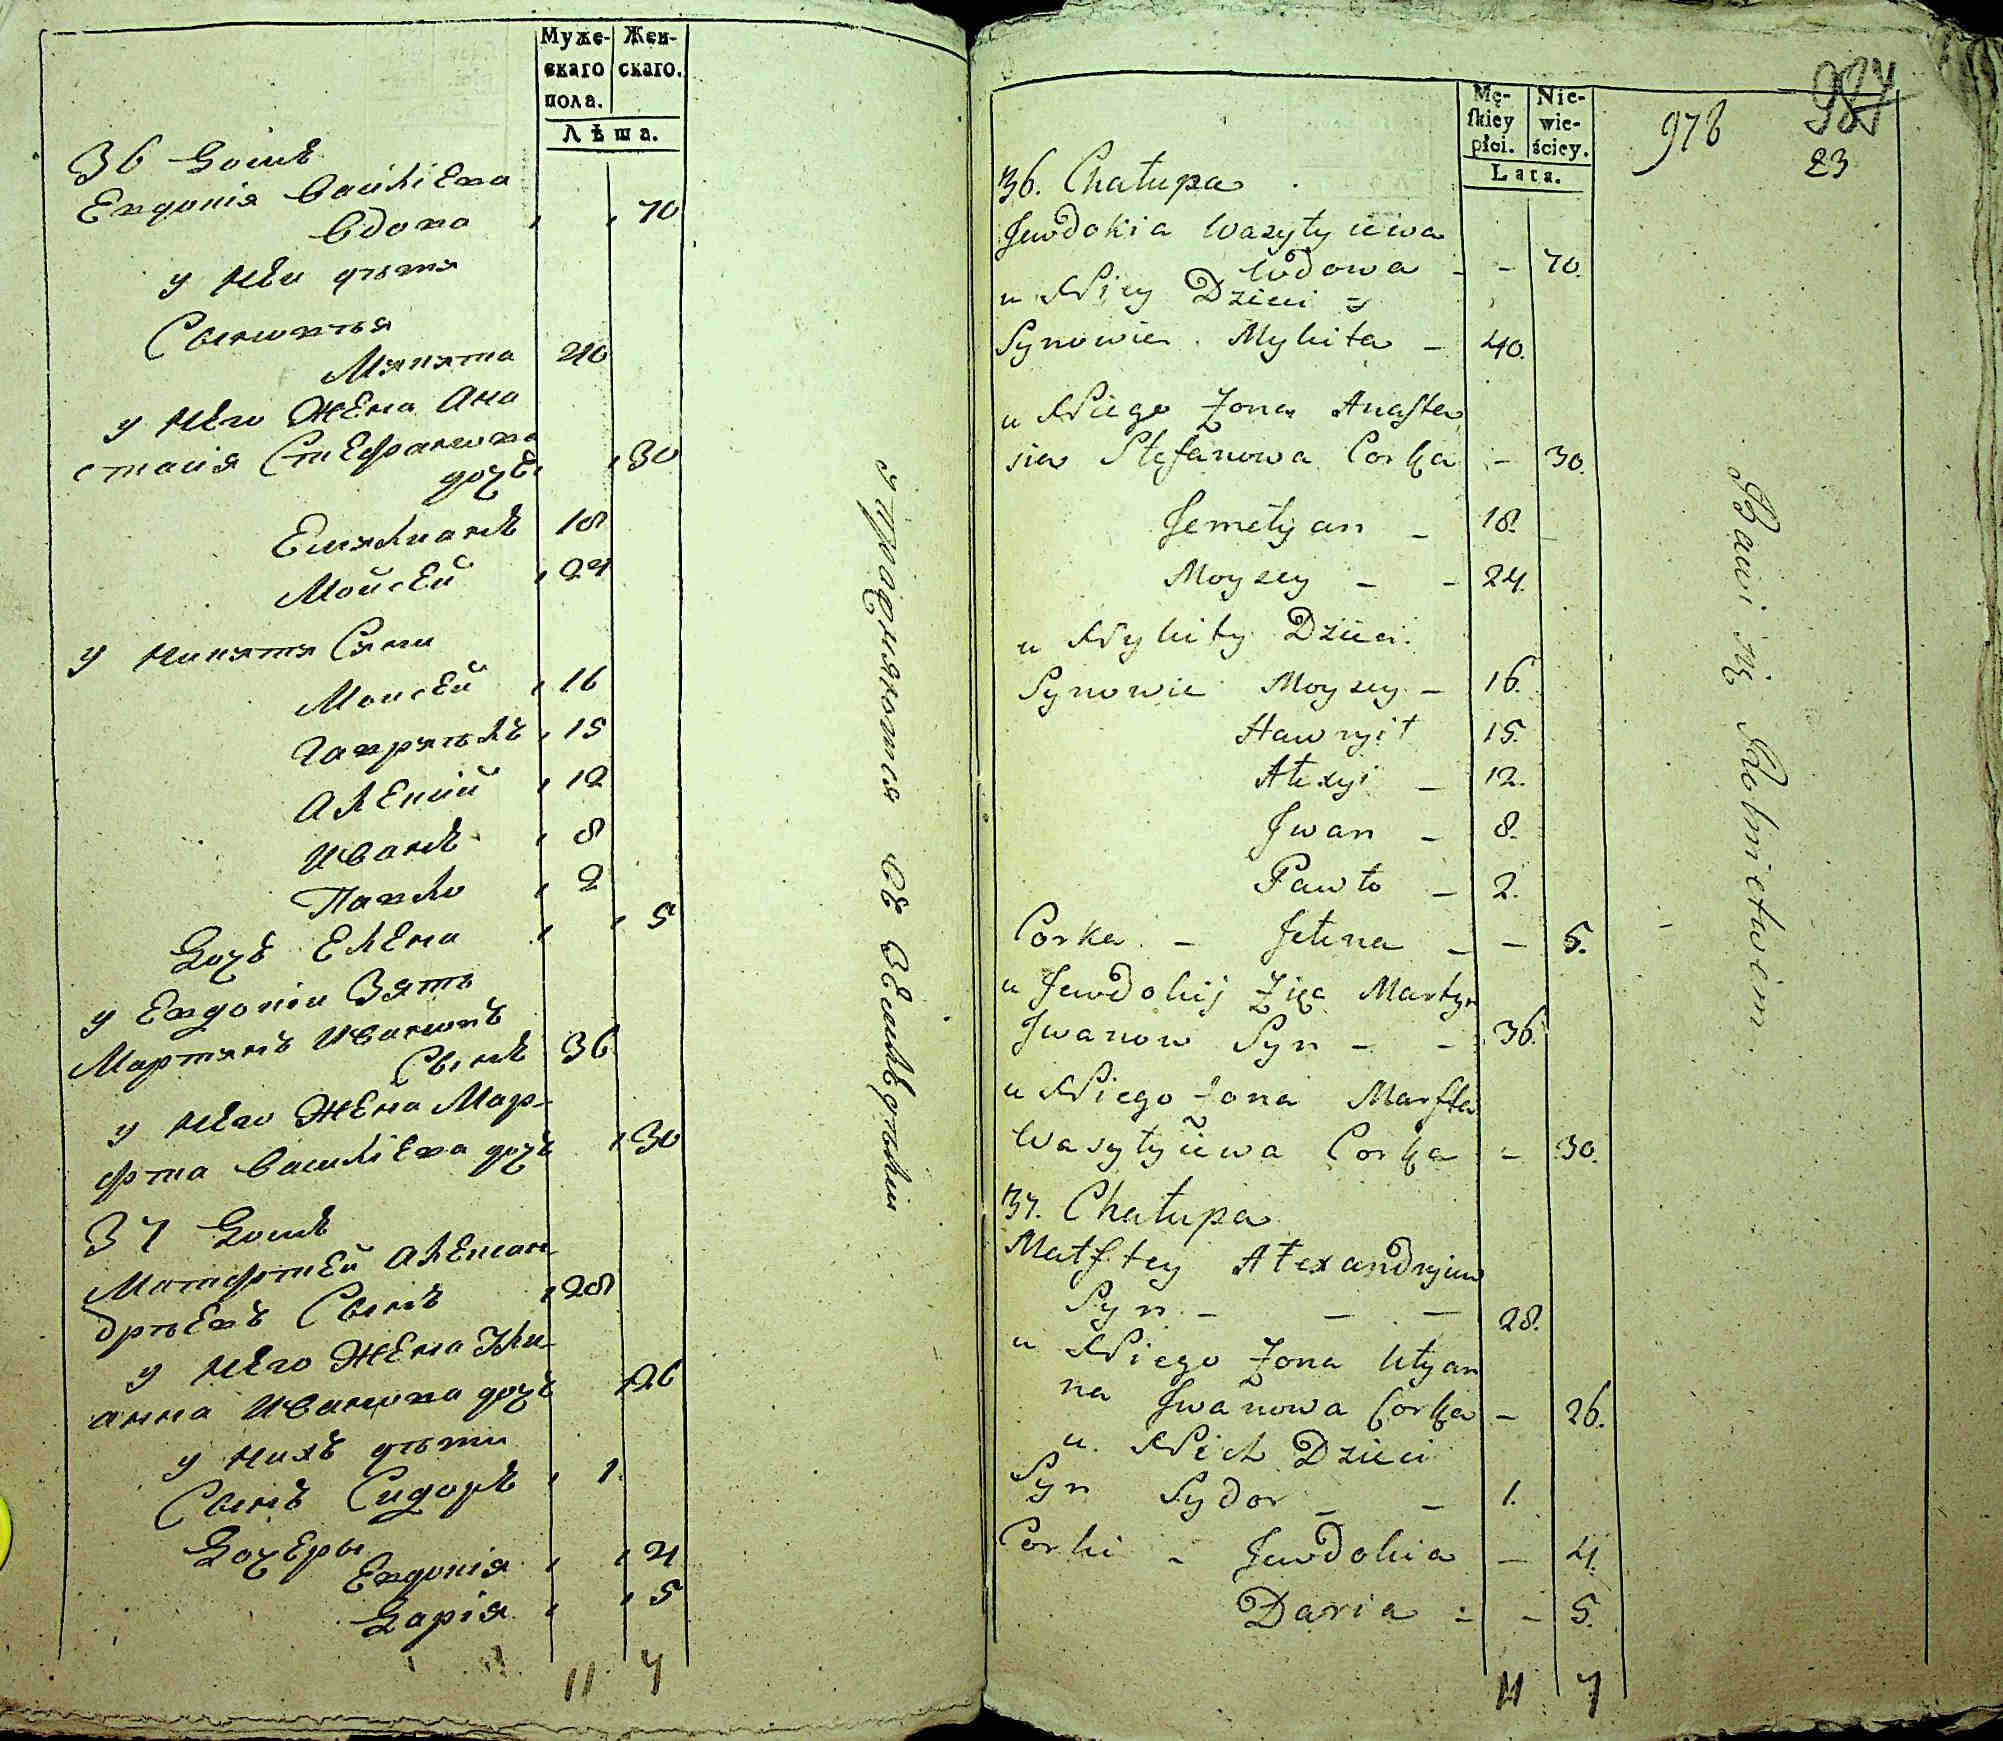 Муже- Жен-
скаго скаго.
пола.
Лѣта.
36 Домъ
Евдокія Василіева
Вдова 70
у Неи дѣтя
Сыновья
Мякята 40
у Него Жена Ана
стасія Стефанова
дочь 30
Емяліанъ 18
Мойсей 24
у Никятя Сяни
Мойсей 16
Гаврѣилъ 15
Алексій 12
Иванъ 8
Павло 2
Дочь Елена 5
у Евдокіи Зять
Мартянъ Ивановъ
Сынъ 36
у Него Жена Мар-
фта Василіева дочь 30
37 Домъ
Матфтей Алексан
дрѣевъ Сынъ 28
у Него Жена Улі-
анна Иванова дочь 26
у нихъ дѣти
Сынъ Сидоръ 1
Дочеры
Евдокія 4
Дарія 5
11 7
упражняются въ Земледѣліи
Mę- Nie-
ſkiey wie-
płci. ściey.
Lata.
978
987
23
36. Chałupa
Jewdokia Wasylyiewa
Wdowa - - 70.
u Niey Dzieci
Synowie. Mykita - 40.
u Niego Żona Anasta
sia Stefanowa Corka - 30.
Jemelyan - 18.
Moysey - - 24.
u Nykity Dzieci.
Synowie Moysey - 16.
Hawryił 15.
Alexyi - 12.
Jwan - 8.
Pawło - 2.
Corka - Jelena - - 5.
u Jewdokij Zięc Martyn
Jwanow Syn - - 36.
u Niego Żona Marfta
Wasylyiewa Corka - 30.
37. Chałupa
Matftey Alexandryiew
Syn - - - 28.
u Niego Żona Ulyan
na Jwanowa Corka - 26.
u. Nich Dzieci
Syn Sydor - - 1.
Corki - Jewdokia - 4.
Daria - - 5.
11 7
Bawi się Rolnictwem